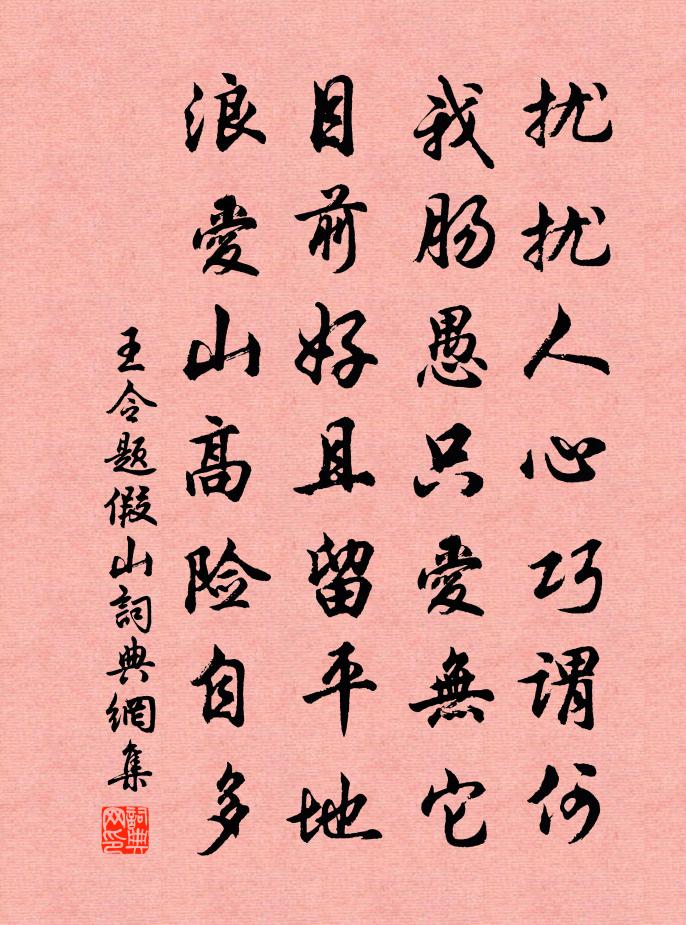 扰扰人心巧谓何
我肠愚只爱無它
目前好且留平地
浪爱山高险自多
王令题假山詞典網集
詞典网印